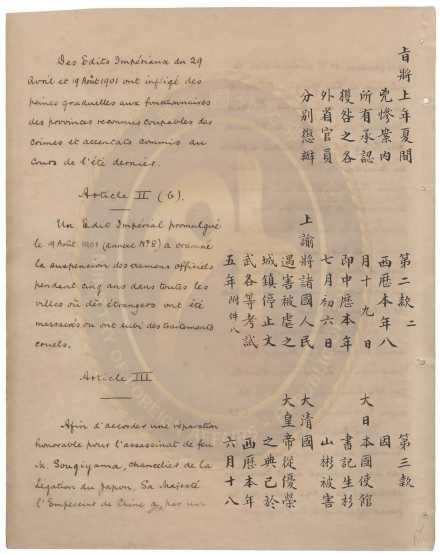 Des Edits Impériaux du 29
Avril et 19 Août 1901 ont infligé des
peines graduelles aux fonctionnaires
des provinces reconnus coupables des
crimes et attentats commis au
Cours de l'été dernier.
旨將上年夏間
兇慘案內
所有承認
獲咎之各
外省官員
分別懲辦
Article II (b).
Un Edit Impérial promulgué
le 19 Août 1901 (annexe N°8) a ordonné
la suspension des examens officiels
pendant cinq ans dans toutes les
villes où des étrangers ont été
massacrés ou ont subi des traitements
cruels.
第二款二
西歷本年八
月十九日
即中歷本年
七月初六日
上諭將諸國人民
遇害被虐之
城鎮停止文
武各等考試
五年附件八
Article III
Afin d'accorder une réparation
honorable pour l'assassinat de feu
M. Sougiyama, chancelier de la
Légation du Japon, Sa Majesté
l'Empereur de Chine a, par un
第三款
因
大日本國使館
書記生杉
山彬被害
大清國
大皇帝從優榮
之典已於
西歷本年
六月十八